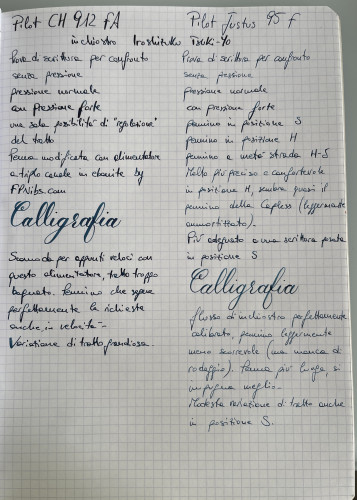 Pilot CH 912 FA
inchiostro Iroshizuku Tsuki-Yo
Prova di scrittura per confronto
senza pressione
pressione normale
con pressione forte
una sola possibilità di "regolazione"
del tratto
Penna modificata con alimentatore
a triplo canale in ebanite by
FPNibs.com
Calligrafia
Scomoda per appunti veloci con
questo alimentatore, tratto troppo
bagnato. Pennino che segue
perfettamente le richieste
anche in velocità.
Variazione di tratto grandiosa.
Pilot Justus 95 F
Prova di scrittura per confronto
senza pressione
pressione normale
con pressione forte
pennino in posizione S
pennino in posizione H
pennino a metà strada H-S
Molto più preciso e confortevole
in posizione H, sembra quasi il
pennino della Capless (leggermente
ammortizzato).
Più adeguato a una scrittura posata
in posizione S
Calligrafia
flusso di inchiostro perfettamente
calibrato, pennino leggermente
meno scorrevole (ma manca di
rodaggio). Penna più lunga, si
impugna meglio.
Modesta variazione di tratto anche
in posizione S.